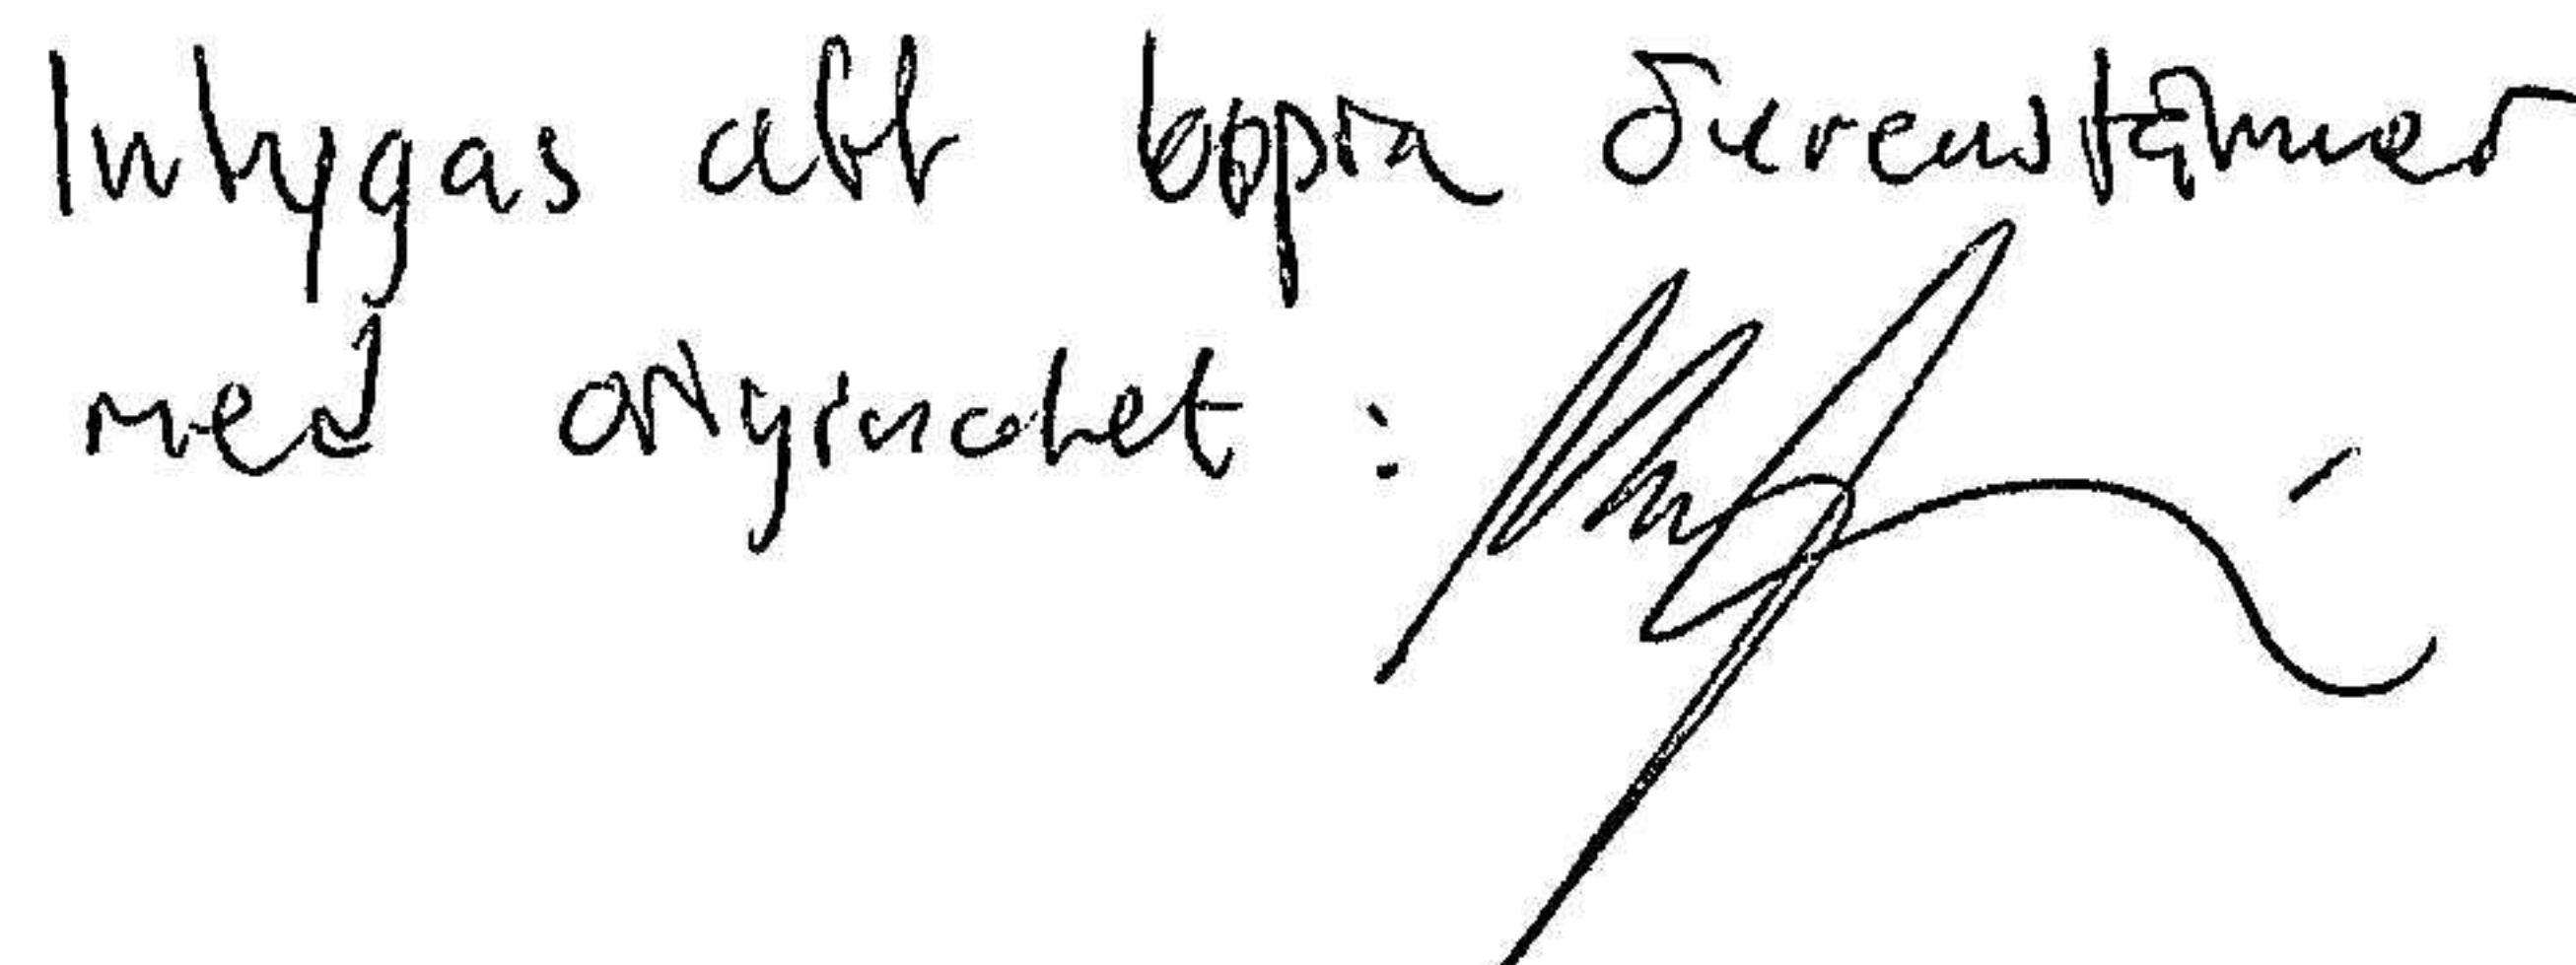 Intygas att kopia överenstämmer
med originalet :